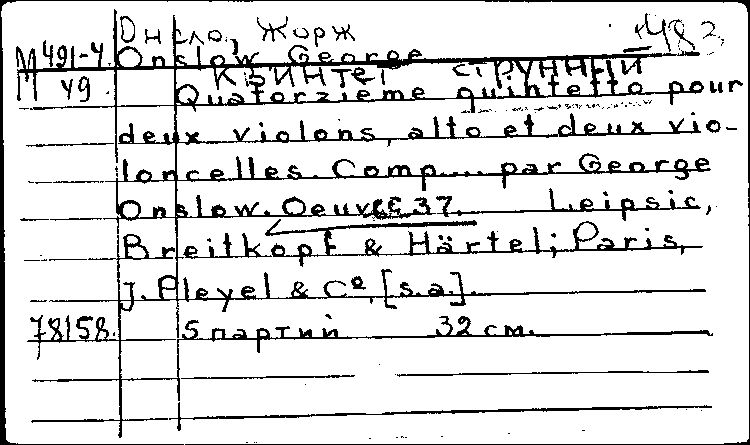 Онсло, Жорж 483
М 491-4 Onslow George
М 49 Квинтет струнный
Quatorzieme quintetto pour
deux violons, alto et deux vio-
loncelles. Comp.... par George
Onslow. Oeuvre 37. Leipsic,
Breitkopf & Härtel; Paris,
J. Pleyel & Co, [s.a.].
78158. 5 партий 32 см.